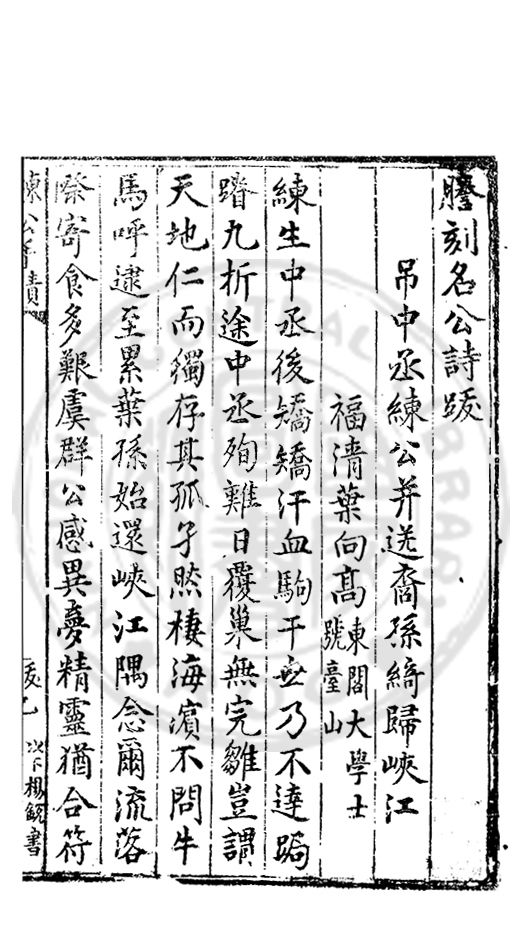 謄刻名公詩跋
吊中丞練公并送裔孫綺歸峽江
福清葉向高東閣大學士號臺山
練生中丞後矯矯汗血駒干世乃不達跼
蹐九折途中丞殉難日覆巢無完雛豈謂
天地仁而獨存其孤孑然棲海濱不問牛
馬呼逮至累葉孫始還峽江隅念爾流落
際寄食多艱虞群公感異夢精靈猶合符
以下楊觀書